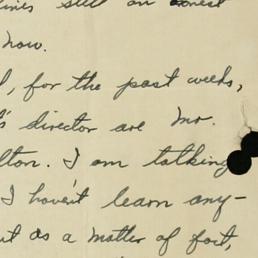 still on honest
now.
, for the past weeks,
's director are Mr.
lton. I am talking
I haven't learn any-
ut as a matter of fact,